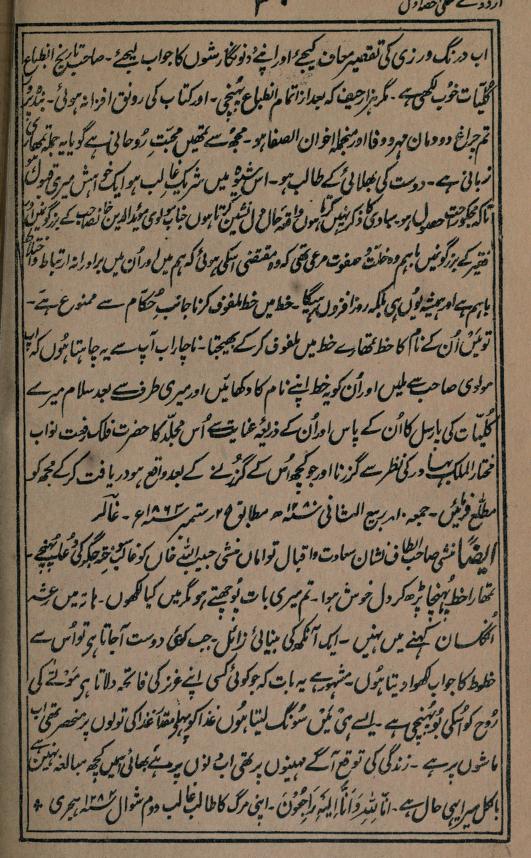 اردوے معلی حصہ اول
اب درنگ ورزی کی تقصیر معاف کیجئے اور اپنے دونو نگارشوں کا جواب لیجئے۔ صاحب تاریخ انطباع
کلیات خوب لکھی ہے۔ مگر ہزار حیف کہ بعد از اتمام انطباع پہنچی۔ اور کتاب کی رونق افزا نہ ہوئی۔ بندہ پرور
تم چراغ دودمان مہر و وفا اور منجملہ اخوان الصفا ہو۔ مجھ سے تمھیں محبت روحانی ہے گویا یہ جملہ تمھاری
زبانی ہے۔ دوست کی بھلائی کے طالب ہو۔ اس شیوہ میں شریک غالب ہو ایک خواہش میری قبول
تا کہ مجکو راحت حصول ہو۔ مبادی کا ذکر نہیں کرتا ہوں واقعہ حال دل نشین کرتا ہوں جناب مولوی مؤید الدین خانصاحب کے بزرگونمیں اور
فقیر کے بزرگونمیں باہم وہ خلت و صفوت مرعی تھی کہ وہ مقتضی اسکی ہوئی کہ ہم میں اور اُن میں برادرانہ ارتباط و
باہم ہے اور ہمیشہ یوں ہی بلکہ روز افزوں رہیگا۔ خط میں خط ملفوف کرنا جانب حکام سے ممنوع ہے۔
تو میں اُن کے نام کا خط تمھارے خط میں ملفوف کر کے بھیجتا۔ ناچار اب آپ سے یہ چاہتا ہوں کہ اب
مولوی صاحب سے ملیں اور اُن کو یہ خط اپنے نام کا دکھائیں اور میری طرف سے بعد سلام میرے
کلیات کی پارسل کا اُن کے پاس اور اُن کے ذریعہ عنایت سے اُس مجلد کا حضرت فلک رفعت نواب
مختار الملک بہادر کی نظر سے گزرنا اور جو کچھ اُس کے گزرنے کے بعد واقع ہو دریافت کر کے مجھ کو
مطلع فرمائیں۔ جمعہ ۱۰ ربیع الثانی سنہ ۱۲۸۰ھ مطابق ۲۵ ستمبر سنہ ۱۸۶۳ء۔ غالب
ایضاً منشی صاحب الطاف نشان سعادت و اقبال توامان منشی حبیب اللہ خاں کو غالب سوختہ جگر کی دعا پہنچے۔
تمھارا خط پہنچا پڑھ کر دل خوش ہوا۔ تم میری بات پوچھتے ہو مگر میں کیا لکھوں۔ ہاتھ میں رعشہ
انگلیاں کہنے میں نہیں۔ ایک آنکھ کی بینائی زائل۔ جب کوئی دوست آ جاتا ہی تو اُس سے
خطوط کا جواب لکھوا دیتا ہوں۔ مشہور ہے یہ بات کہ جو کوئی کسی اپنے عزیز کی فاتحہ دلاتا ہی موتے کی
روح کو اُسکی بو پہنچتی ہے۔ ایسے ہی میں سونگھ لیتا ہوں غذا کو پہلے مقدار غذا کی تولوں پر منحصر تھی اب
ماشوں پر ہے۔ زندگی کی توقع آگے مہینوں پر تھی اب دنوں پر ہے بھائی اسمیں کچھ مبالغہ نہیں ہے
بالکل میرا یہی حال ہے۔ انا للہ و انا الیہ راجعون۔ اپنی مرگ کا طالب غالب دوم شوال سنہ ۱۲۸۳ ہجری ٭